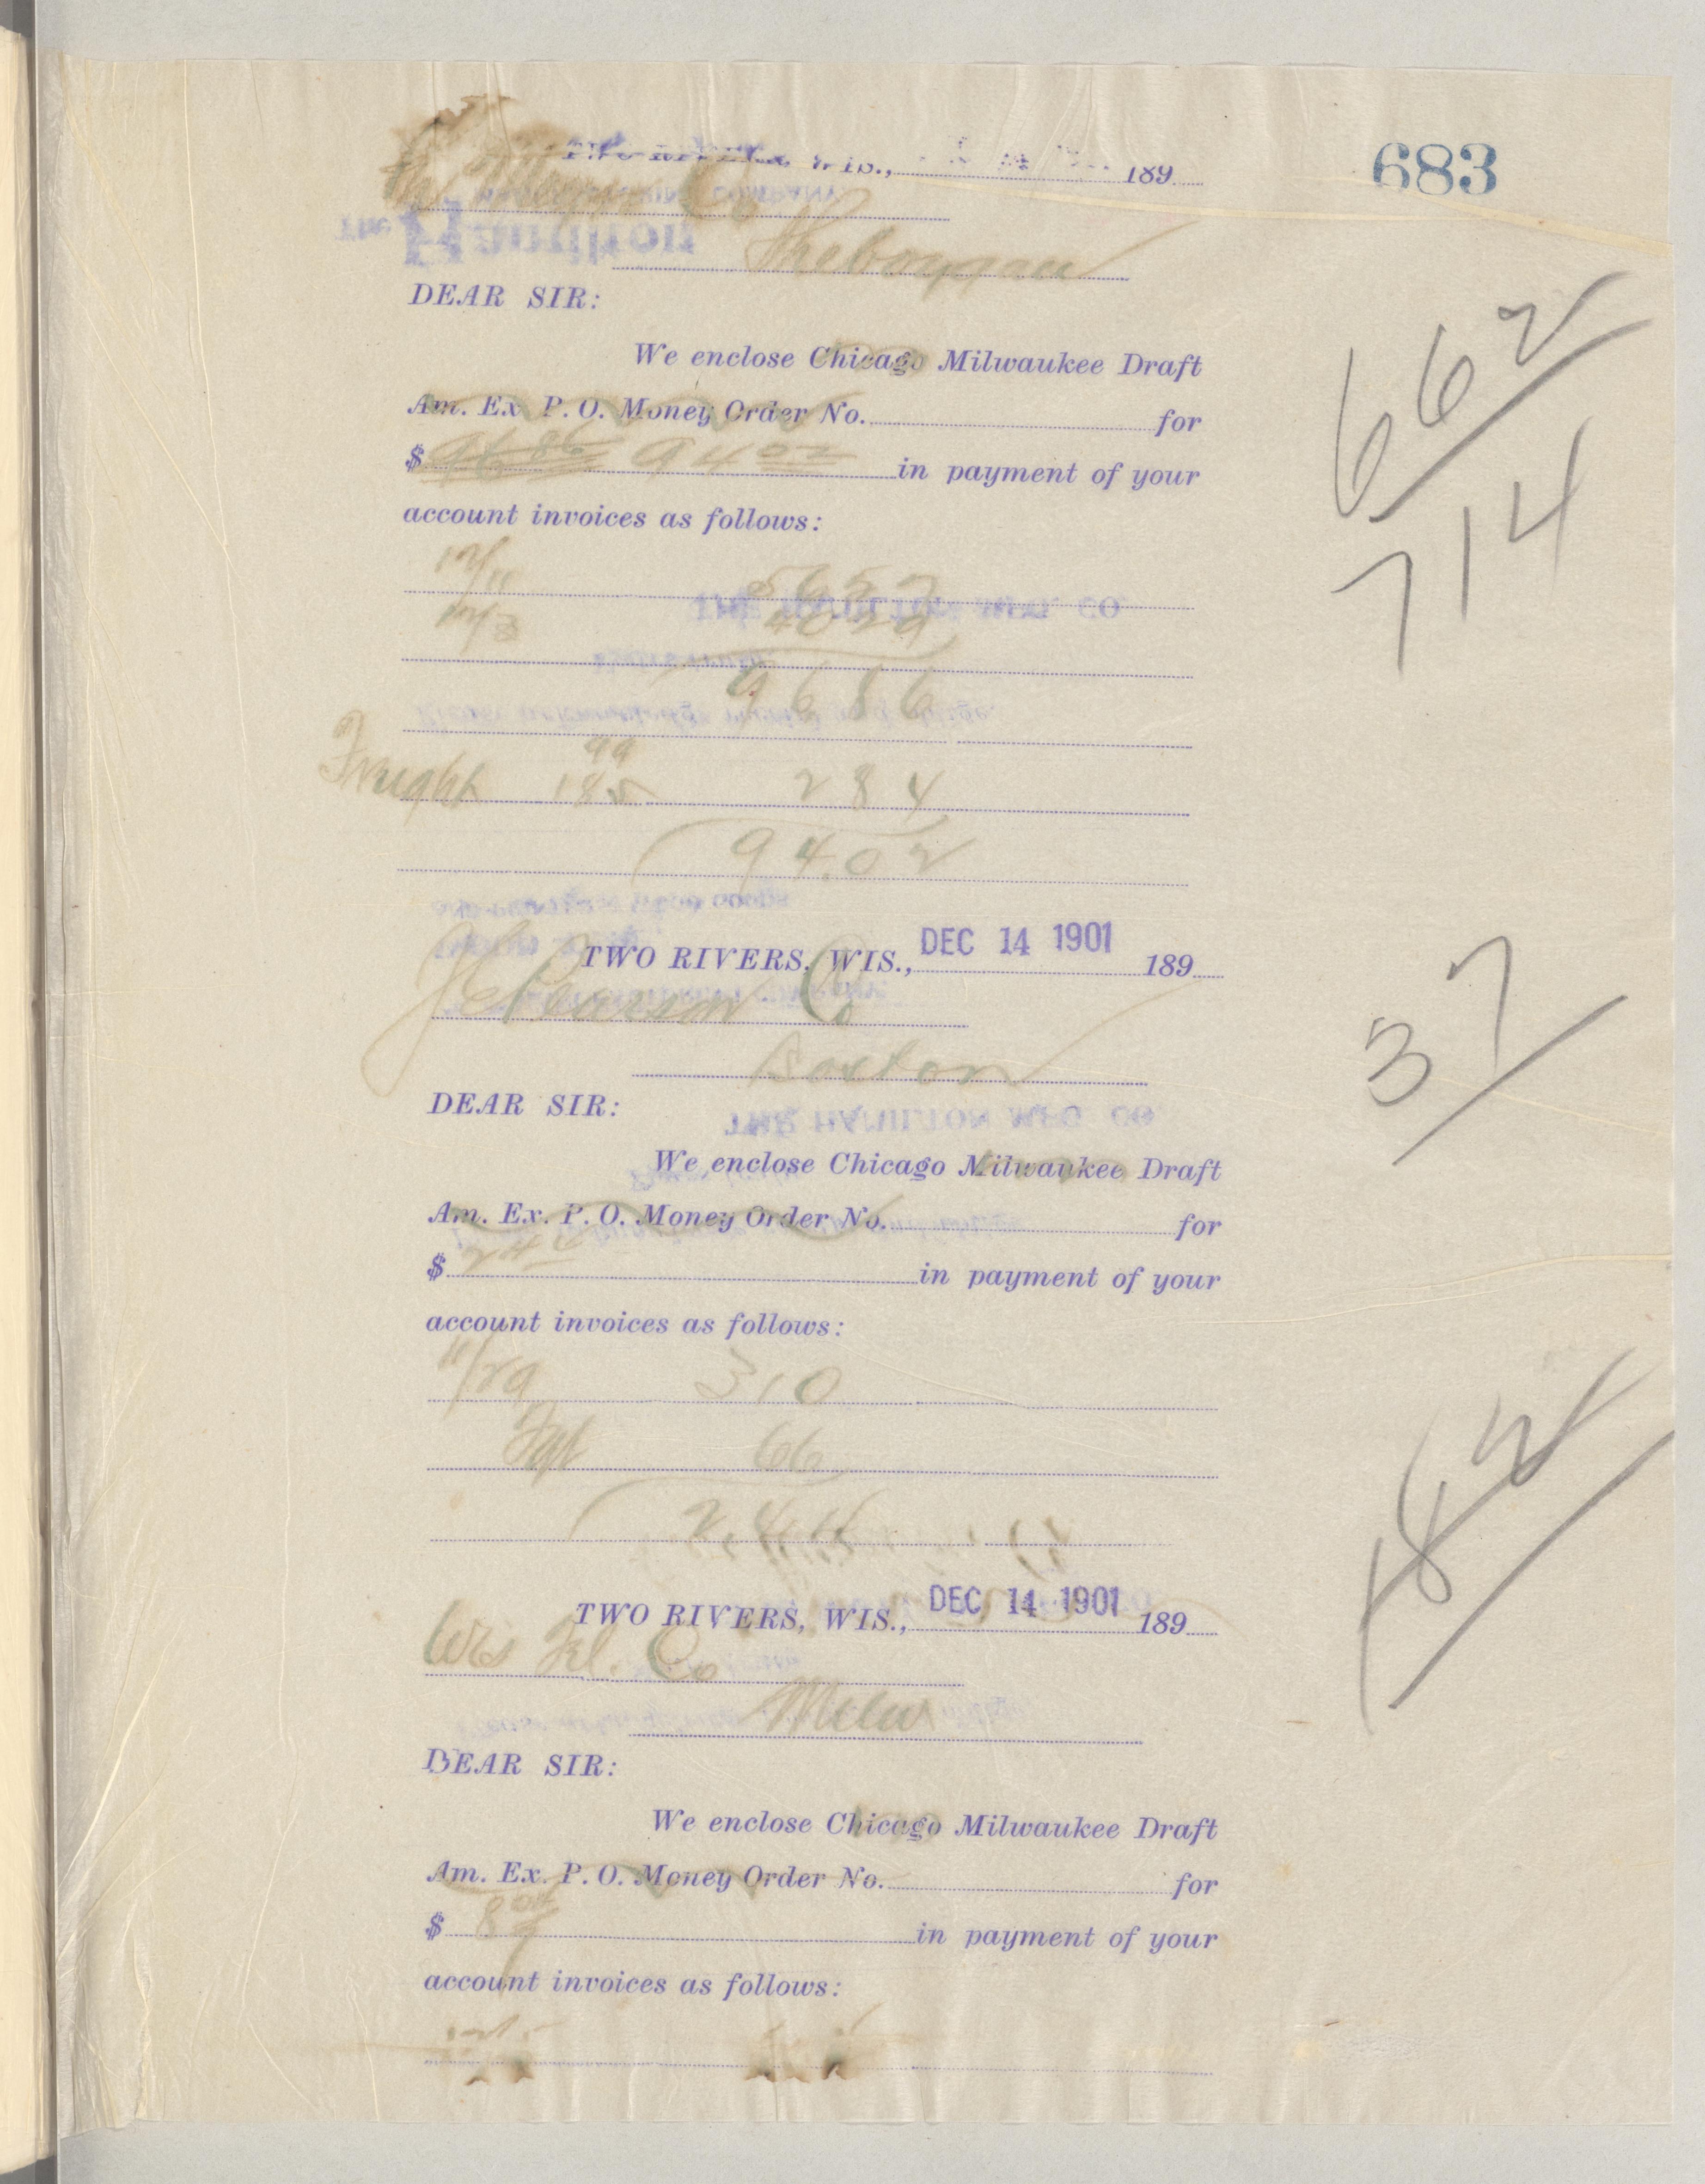 683
WIS., 189
Co
Sheboygan
DEAR SIR:
We enclose Chicago Milwaukee Draft
Am. Ex P. O. Money Order No. for
$ 96 86 94 02 in payment of your
account invoices as follows:
12/11 56 57
12/3 40 29
96 86
99
Freight 185 2 84
94.02
662
714
TWO RIVERS, WIS., DEC 14 1901 189
J C Pearson Co
Boston
DEAR SIR:
We enclose Chicago Milwaukee Draft
Am. Ex. P. O. Money Order No. for
$ 2 44 in payment of your
account invoices as follows:
11/29 3 10
Fgt 66
2.44
37
TWO RIVERS, WIS., DEC 14 1901 189
Wis Tel. Co
Milw
DEAR SIR:
We enclose Chicago Milwaukee Draft
Am. Ex. P. O. Money Order No. for
$ in payment of your
account invoices as follows: